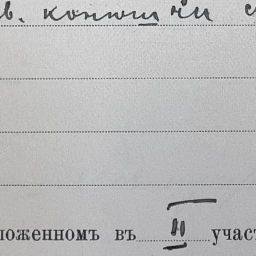 в. конюшни
ложенномъ въ II участ